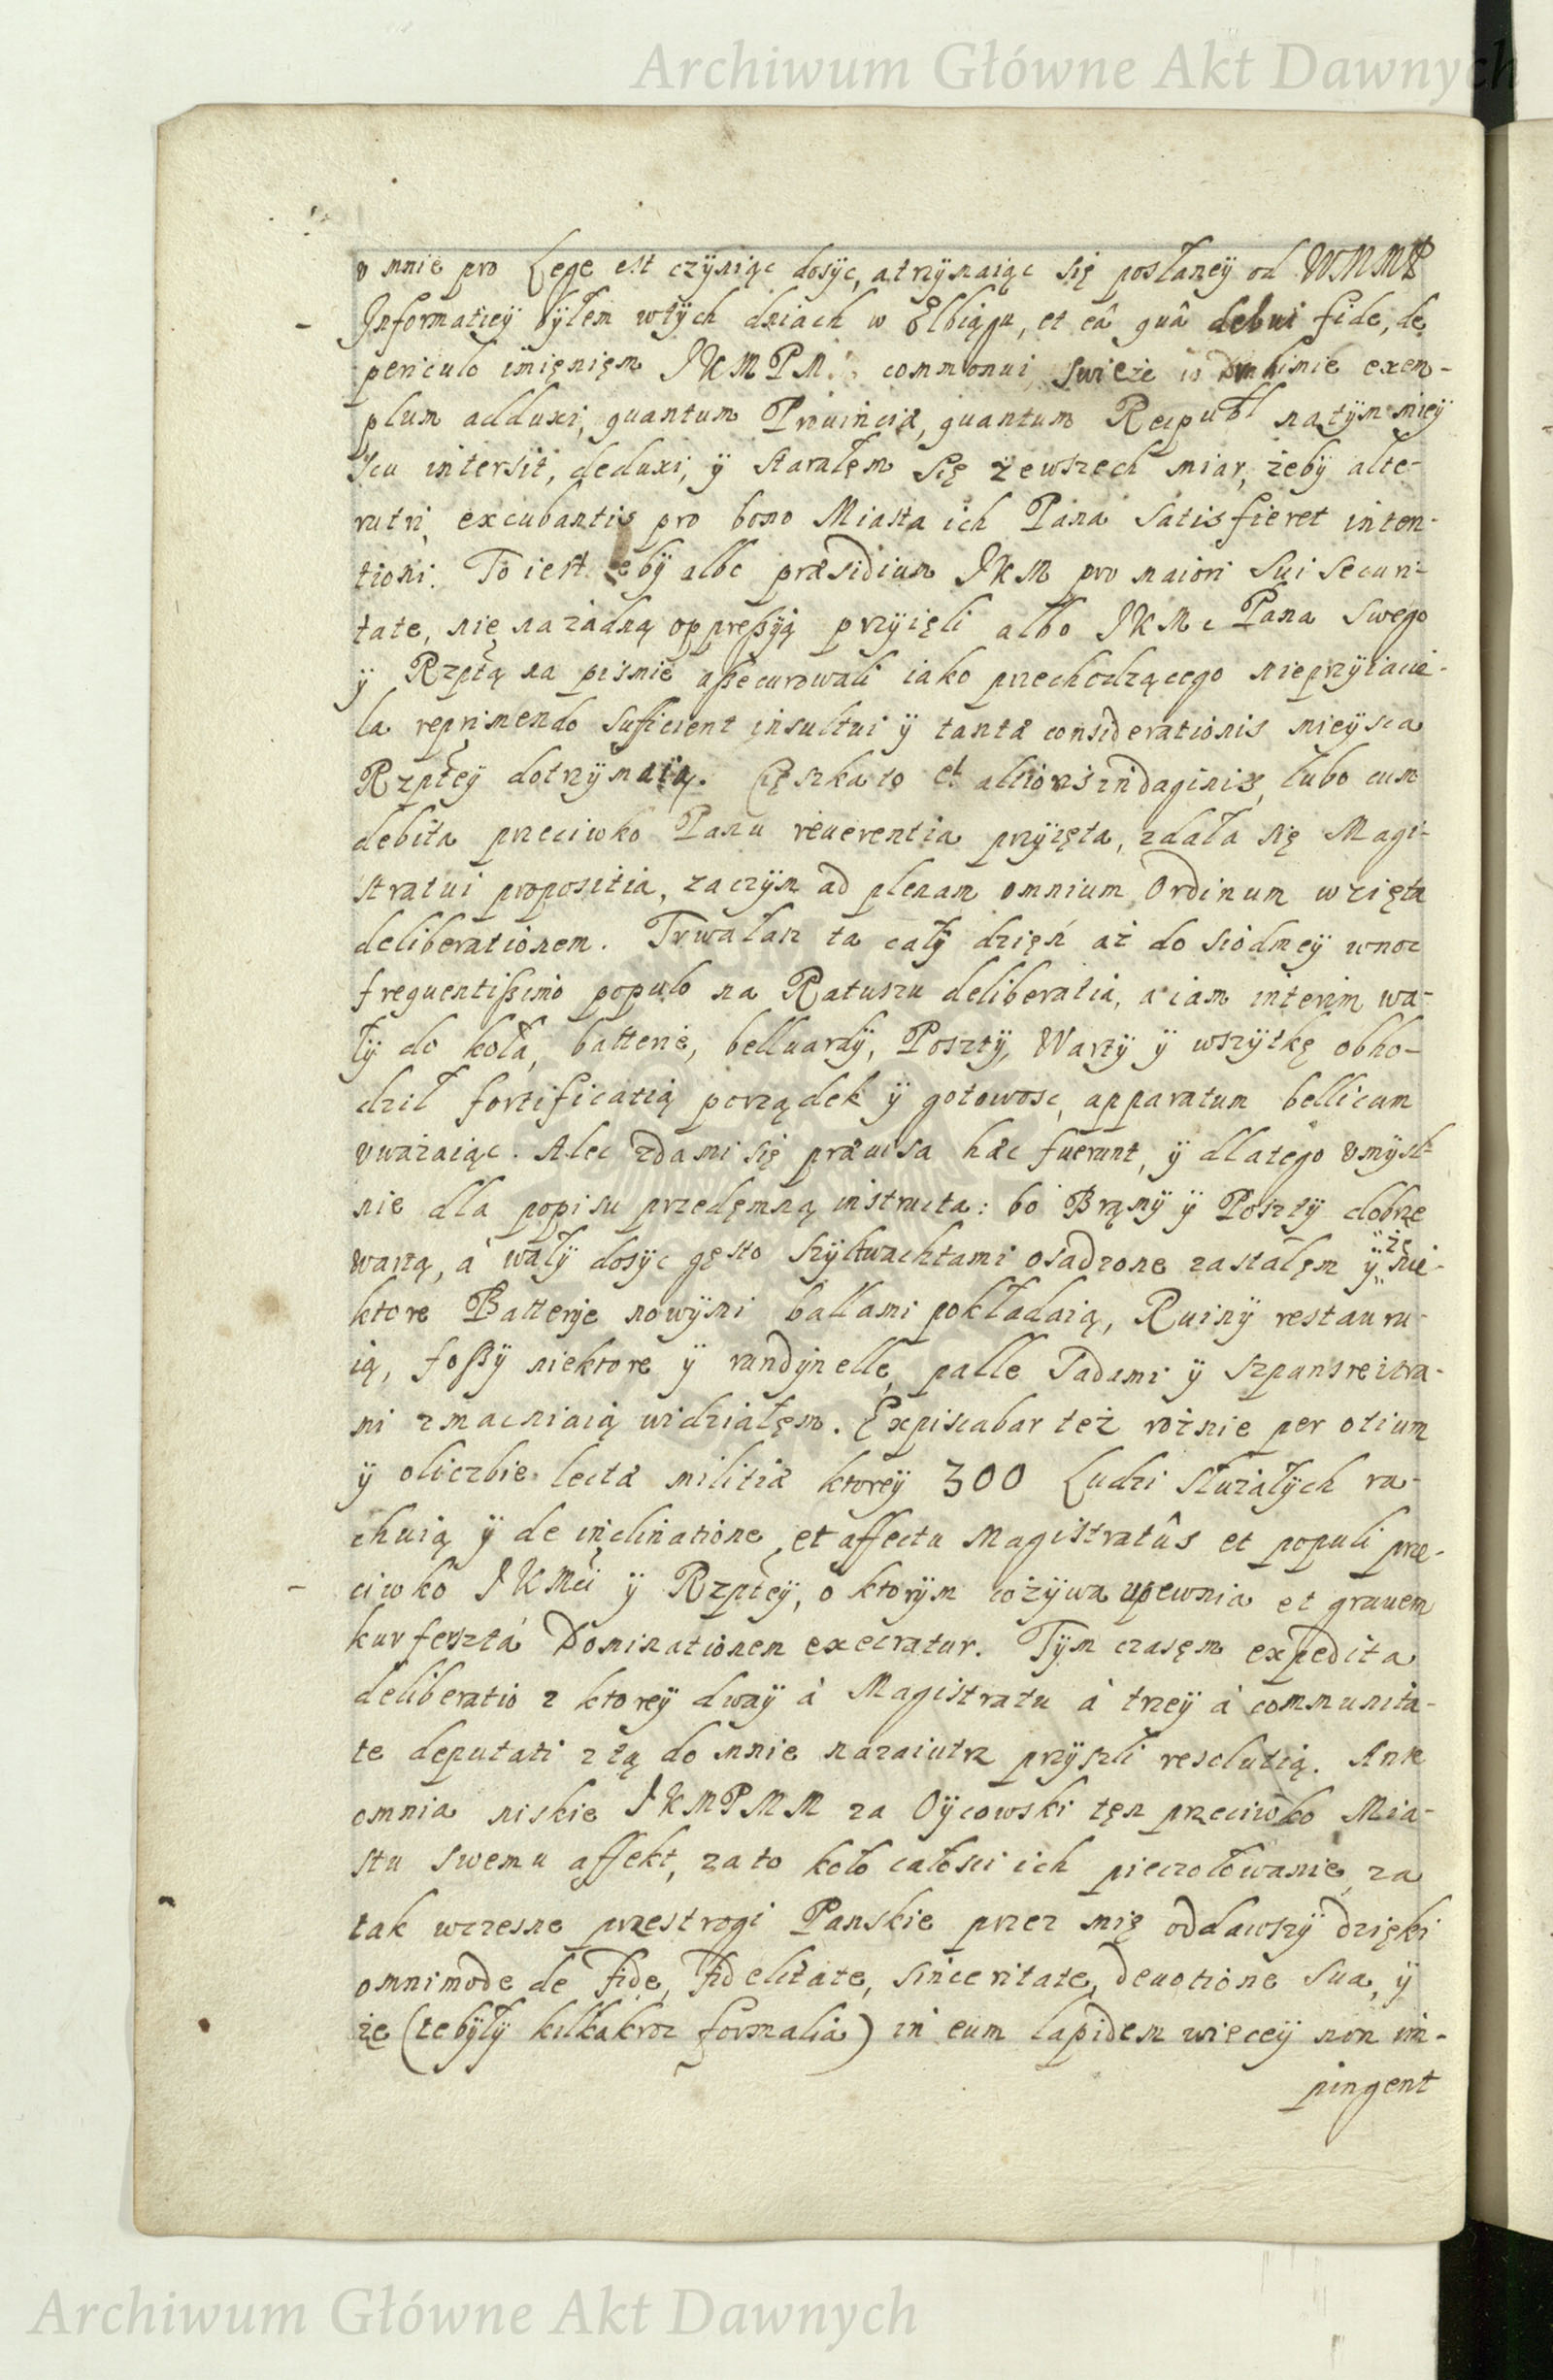 Archiwum Główne Akt Dawnych
v mnie pro Lege est czÿniąc dosÿc, a trzÿmaiąc się posłaneÿ od WMMP
Informatieÿ bÿłem wtÿch dniach w Elbiągu, et eâ quâ debui fide, de
periculo imięnięm JKMPM commonui, swieże w exem-
plum adduxi, quantum Prouinciæ, quantum Reipubl natÿm mieÿ
scu intersit, deduxi, ÿ starałęm się zewszech miar, żebÿ alte-
rutri, excubantis pro bono Miasta ich Pana satisfieret inten-
tioni. To iest ebÿ albo præsidium JKM pro maiori sui securi-
tate, nie na żadną oppressÿą przÿięli albo JKMc Pana swego
ÿ Rzptą na pismie assecurowali iako przechodzącego nieprzÿiacie-
la reprimendo sufficient insultui ÿ tantæ considerationis mieÿsca
Rzpteÿ dotrzÿmaią. Cięszka to et altioris indaginis, lubo cum
debita przeciwko Panu reuerentia przÿięta, zdała się Magi-
stratui propositia, zaczÿm ad plenam omnium Ordinum wzięta
deliberationem. Trwałasz ta całÿ dzięń aż do siodmeÿ wnoc
frequentissimo populo na Ratuszu deliberatia, a iam interim wa-
łÿ do koła, batterie, belluardÿ, Posztÿ, Wartÿ ÿ wszÿtkę obho-
dził fortificatią porządek ÿ gotowosc, apparatum bellicum
vważaiąc. Alec zda mi się præuisa hæc fuerunt, ÿ dlatego vmÿsl-
nie dla popisu przedęmną instructa: bo Brąmÿ ÿ Posztÿ dobrze
wartą, a wałÿ dosÿc gęsto szÿltwachtami osadzone zastałęm ÿ że nie-
ktore Batterÿe nowÿmi ballami pokładaią, Ruinÿ restauru-
ią, fossÿ niektore ÿ rundÿnelle, palle Tadami ÿ szpansreitra-
mi zmacniaią widziałęm. Expiscabar też rożnie per otium
ÿ oliczbie lectæ militiæ ktoreÿ 300 Ludzi służałÿch ra-
chuią ÿ de inclinatione, et affectu Magistratûs et populi prze-
ciwko JKMci ÿ Rzpteÿ, o ktorÿm cożÿwa upewnia et grauem
kurferszta Dominationem execratur. Tÿm czasęm expedita
deliberatio z ktoreÿ dwaÿ à Magistratu à trzeÿ à communita-
te deputati ztą do mnie nazaiutrz przÿszli resolutią. Ante
omnia niskie JKMPMM za Oÿcowski tęn przeciwko Mia-
stu swemu affekt, za to koło całosci ich pieczołowanie, za
tak wczesne przestrogi Panskie przez mię oddawszÿ dzięki
omnimode de fide, fidelitate, sinceritate, deuotione sua, ÿ
że (te bÿłÿ kilkakroc formalia) in eum lapidem wieceÿ non im-
pingent
Archiwum Główne Akt Dawnych